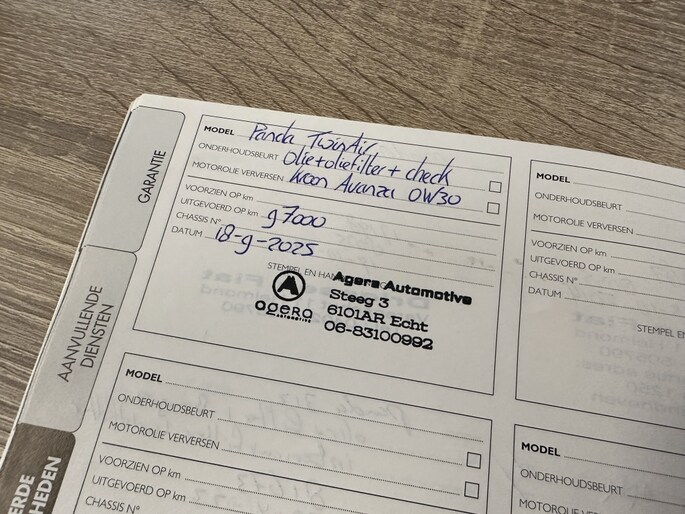 GARANTIE
AANVULLENDE
DIENSTEN
MODEL Panda TwinAir
ONDERHOUDSBEURT olie+oliefilter+ check
MOTOROLIE VERVERSEN kroon Avanza 0W30
VOORZIEN OP km
UITGEVOERD OP km 97000
CHASSIS N°
DATUM 18-9-2025
STEMPEL EN
Agera Automotive
Steeg 3
6101AR Echt
06-83100992
agera
AUTOMOTIVE
MODEL
ONDERHOUDSBEURT
MOTOROLIE VERVERSEN
VOORZIEN OP km
UITGEVOERD OP km
CHASSIS N°
DATUM
STEMPEL EN
MODEL
ONDERHOUDSBEURT
MOTOROLIE VERVERSEN
VOORZIEN OP km
UITGEVOERD OP km
CHASSIS N°
MODEL
ONDERHOUDSBEURT